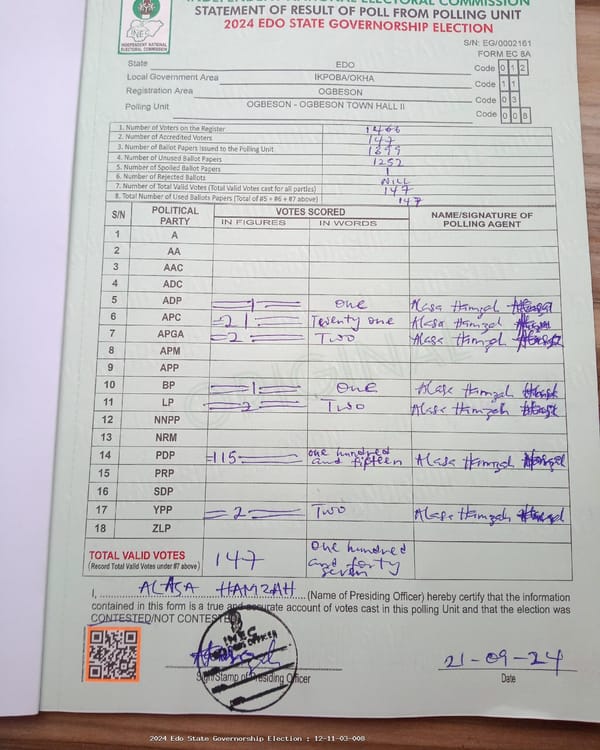 INDEPENDENT NATIONAL ELECTORAL COMMISSION
STATEMENT OF RESULT OF POLL FROM POLLING UNIT
2024 EDO STATE GOVERNORSHIP ELECTION
INEC
INDEPENDENT NATIONAL
ELECTORAL COMMISSION
S/N: EG/0002161
FORM EC 8A
State EDO Code 0 1 2
Local Government Area IKPOBA/OKHA Code 1 1
Registration Area OGBESON Code 0 3
Polling Unit OGBESON - OGBESON TOWN HALL II Code 0 0 8
1. Number of Voters on the Register 1466
2. Number of Accredited Voters 147
3. Number of Ballot Papers Issued to the Polling Unit 1399
4. Number of Unused Ballot Papers 1252
5. Number of Spoiled Ballot Papers 1
6. Number of Rejected Ballots NILL
7. Number of Total Valid Votes (Total Valid Votes cast for all parties) 147
8. Total Number of Used Ballots Papers (Total of #5 + #6 + #7 above) 147
S/N POLITICAL PARTY VOTES SCORED NAME/SIGNATURE OF POLLING AGENT
IN FIGURES IN WORDS
1 A
2 AA
3 AAC
4 ADC
5 ADP 1 one Alasa Hamzah
6 APC 21 Twenty one Alasa Hamzah
7 APGA 2 Two Alasa Hamzah
8 APM
9 APP
10 BP 1 one Alasa Hamzah
11 LP 2 Two Alasa Hamzah
12 NNPP
13 NRM
14 PDP 115 one hundred and fifteen Alasa Hamzah
15 PRP
16 SDP
17 YPP 2 Two Alasa Hamzah
18 ZLP
ORIGINAL
TOTAL VALID VOTES 147 one hundred and forty seven
(Record Total Valid Votes under #7 above)
I, ALASA HAMZAH (Name of Presiding Officer) hereby certify that the information
contained in this form is a true and accurate account of votes cast in this polling Unit and that the election was
CONTESTED/NOT CONTESTED
INEC
Sign/Stamp of Presiding Officer
21-09-24
Date
2024 Edo State Governorship Election : 12-11-03-008